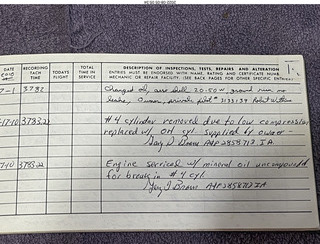 DATE
2010
RECORDING
TACH
TIME
TODAY'S
FLIGHT
TOTAL
TIME IN
SERVICE
DESCRIPTION OF INSPECTIONS, TESTS, REPAIRS AND ALTERATION
ENTRIES MUST BE ENDORSED WITH NAME, RATING AND CERTIFICATE NUMB
MECHANIC OR REPAIR FACILITY. (SEE BACK PAGES FOR OTHER SPECIFIC ENTRIES)
7-1 3782 Changed oil, Shell 20-50W, ground run no
leaks, Owner, private pilot 3133139
-17-10 3783.22 #4 cylinder removed due to low compression
replaced w/ OH cyl. supplied by owner -
A&P 2858712 IA
-17-10 3783.22 Engine serviced w/ mineral oil uncompounded
for break in #4 cyl.
A&P 2858712 IA